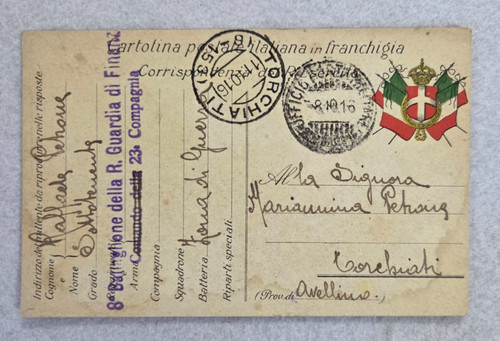 Cartolina postale italiana in franchigia
Corrispondenza
TORCHIATI
11.10.16
(AVELLINO)
UFFICIO POSTA MILITARE
8.10.16
Indirizzo del mittente da riprodurre nelle risposte
Cognome Petrone
Nome Raffaele
Grado Sottotenente
8° Battaglione della R. Guardia di Finanz
Arma
Comando della 23a Compagnia
Compagnia
Squadrone Zona di Guerra
Batteria
Riparti speciali
Alla Signora
Mariannina Petrone
Torchiati
(Prov. di Avellino.)